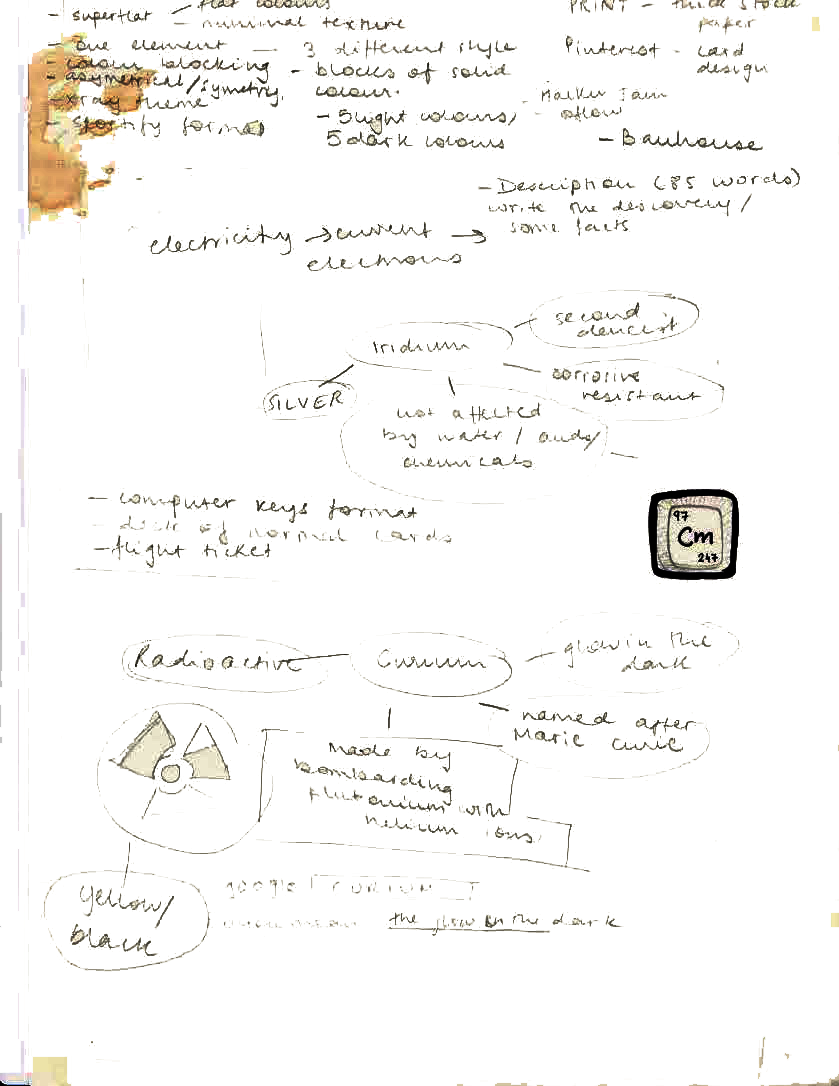 - superflat
- flat colours
- minimal texture
PRINT - thick stock
paper
- one element — 3 different style
- colour blocking
- asymetrical/symetry.
- xray theme
- Spotify format
- blocks of solid
colour.
- 5 light colours/
5 dark colours
Pinterest - card
design
- Bauhouse
- Description (85 words)
write the discovery/
some facts
electricity → current →
electrons
Iridium
second
dencist
corrosive
resistant
SILVER
not affected
by water / acids/
chemicals
- computer keys format
- deck of normal cards
- flight ticket
97
Cm
247
Radioactive
Curium
glow in the
dark
named after
Marie curie
Made by
bombarding
plutonium with
helium ions
yellow/
black
google CURIUM
the glow in the dark